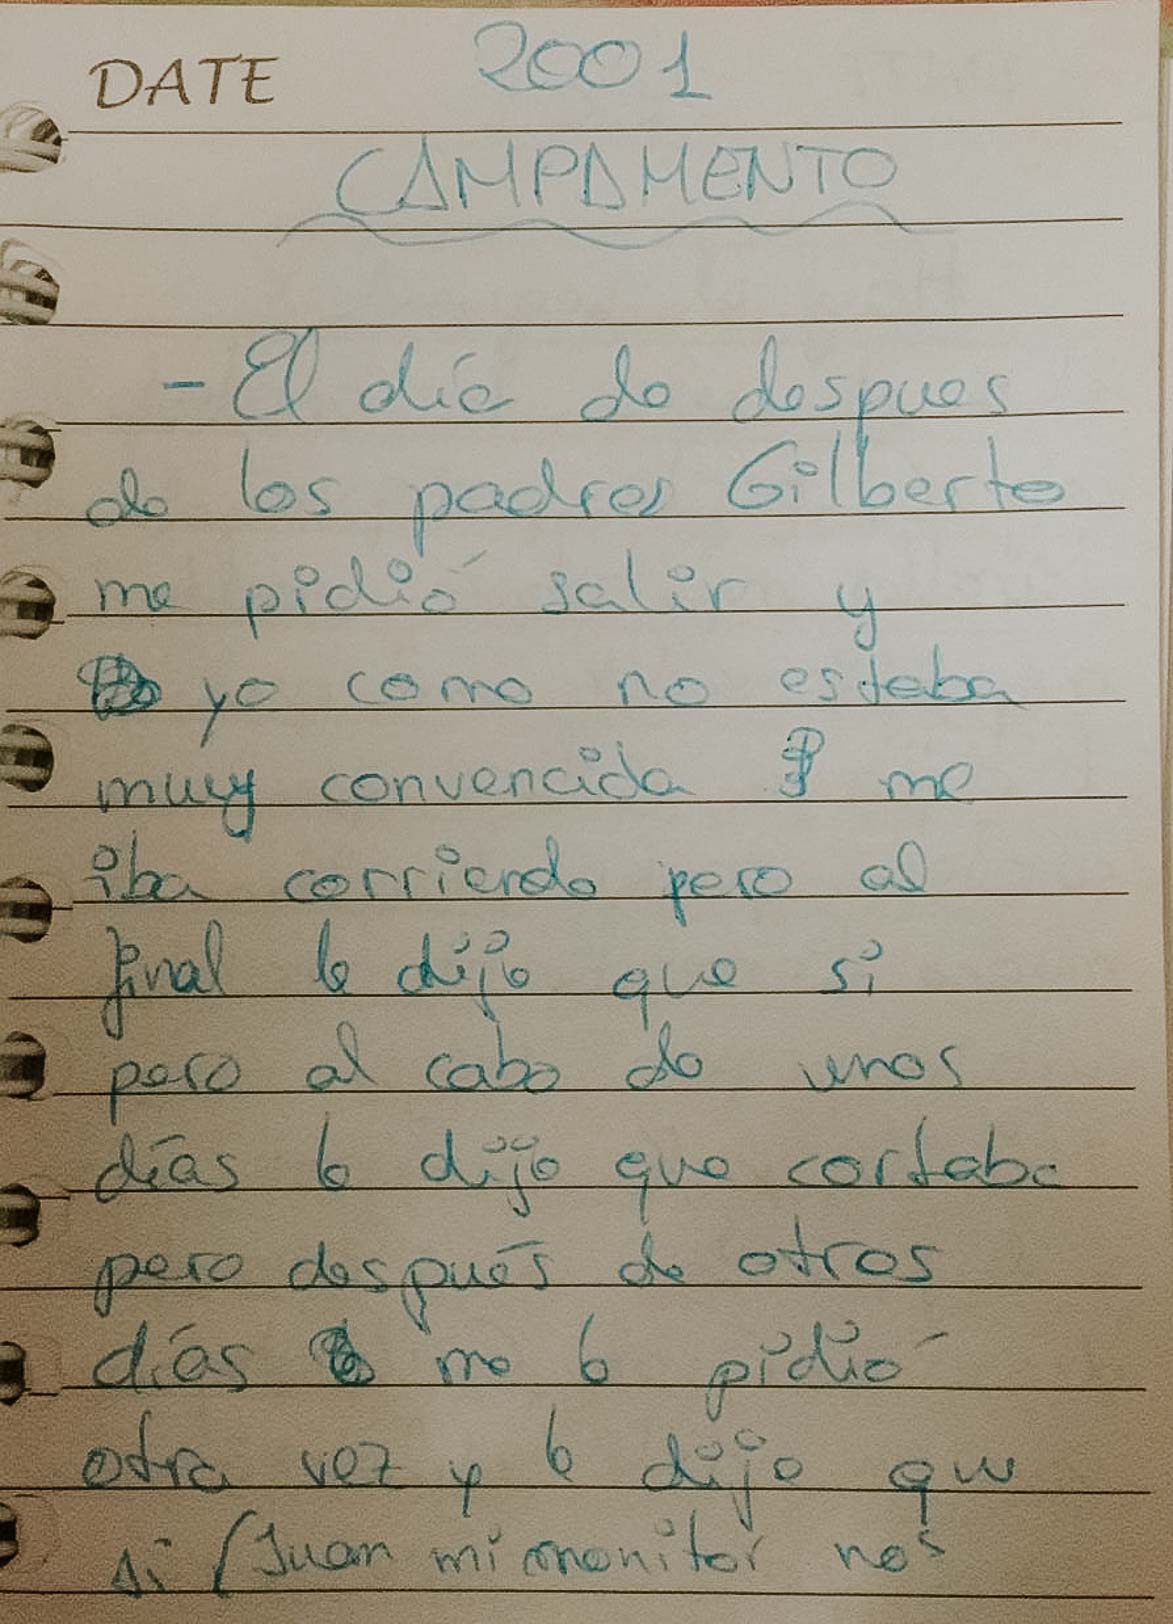 DATE 2001
CAMPAMENTO
- El día de despues
de los padres Gilberto
me pidió salir y
yo como no estaba
muy convencida me
iba corriendo pero al
final le dije que si
pero al cabo de unos
días le dije que cortaba
pero después de otros
días me lo pidió
otra vez y le dije que
si (Juan mi monitor nos